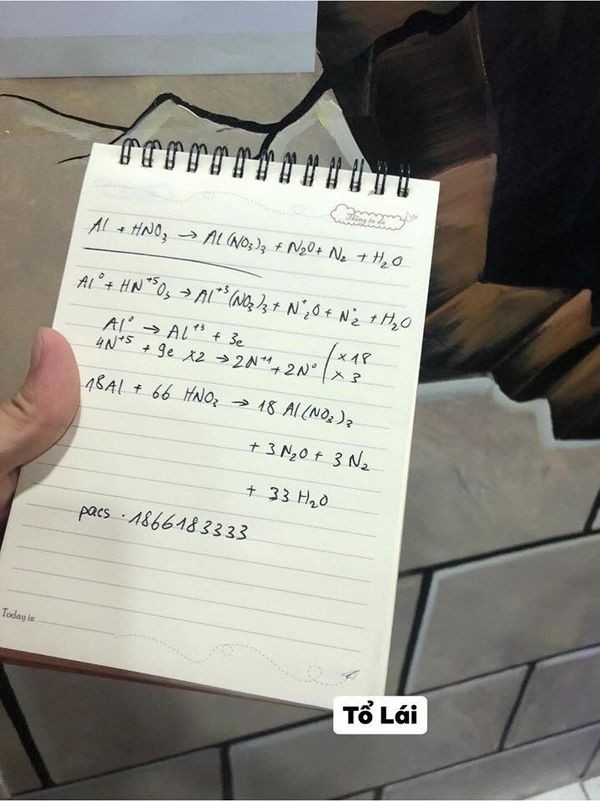 Thing to do
Al + HNO₃ → Al(NO₃)₃ + N₂O + N₂ + H₂O
Al⁰ + HN⁺⁵O₃ → Al⁺³(NO₃)₃ + N⁺₂O + N°₂ + H₂O
Al⁰ → Al⁺³ + 3e | ×18
4N⁺⁵ + 9e ×2 → 2N⁺¹ + 2N⁰ | ×3
18Al + 66 HNO₃ → 18 Al(NO₃)₃
+ 3N₂O + 3N₂
+ 33H₂O
pass . 1866183333
Today is:
Tổ Lái